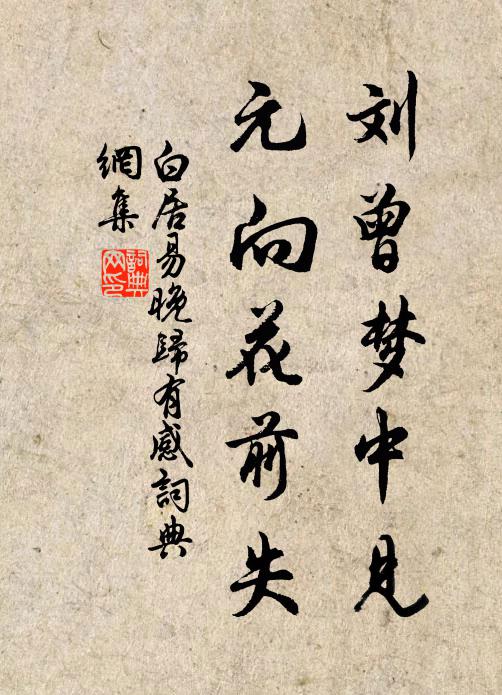 刘曾梦中見
元向花前失
白居易晚歸有感詞典
網集
詞典
网印